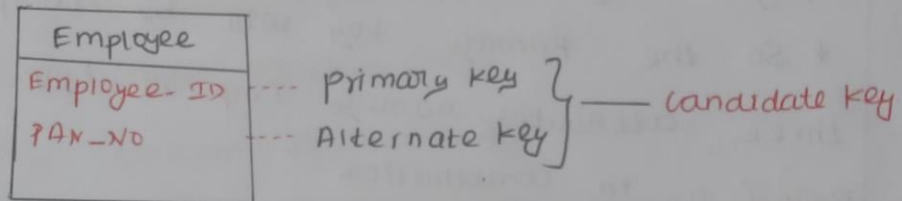 Employee
Employee-ID ---- primary key
PAN_NO ---- Alternate key
candidate key